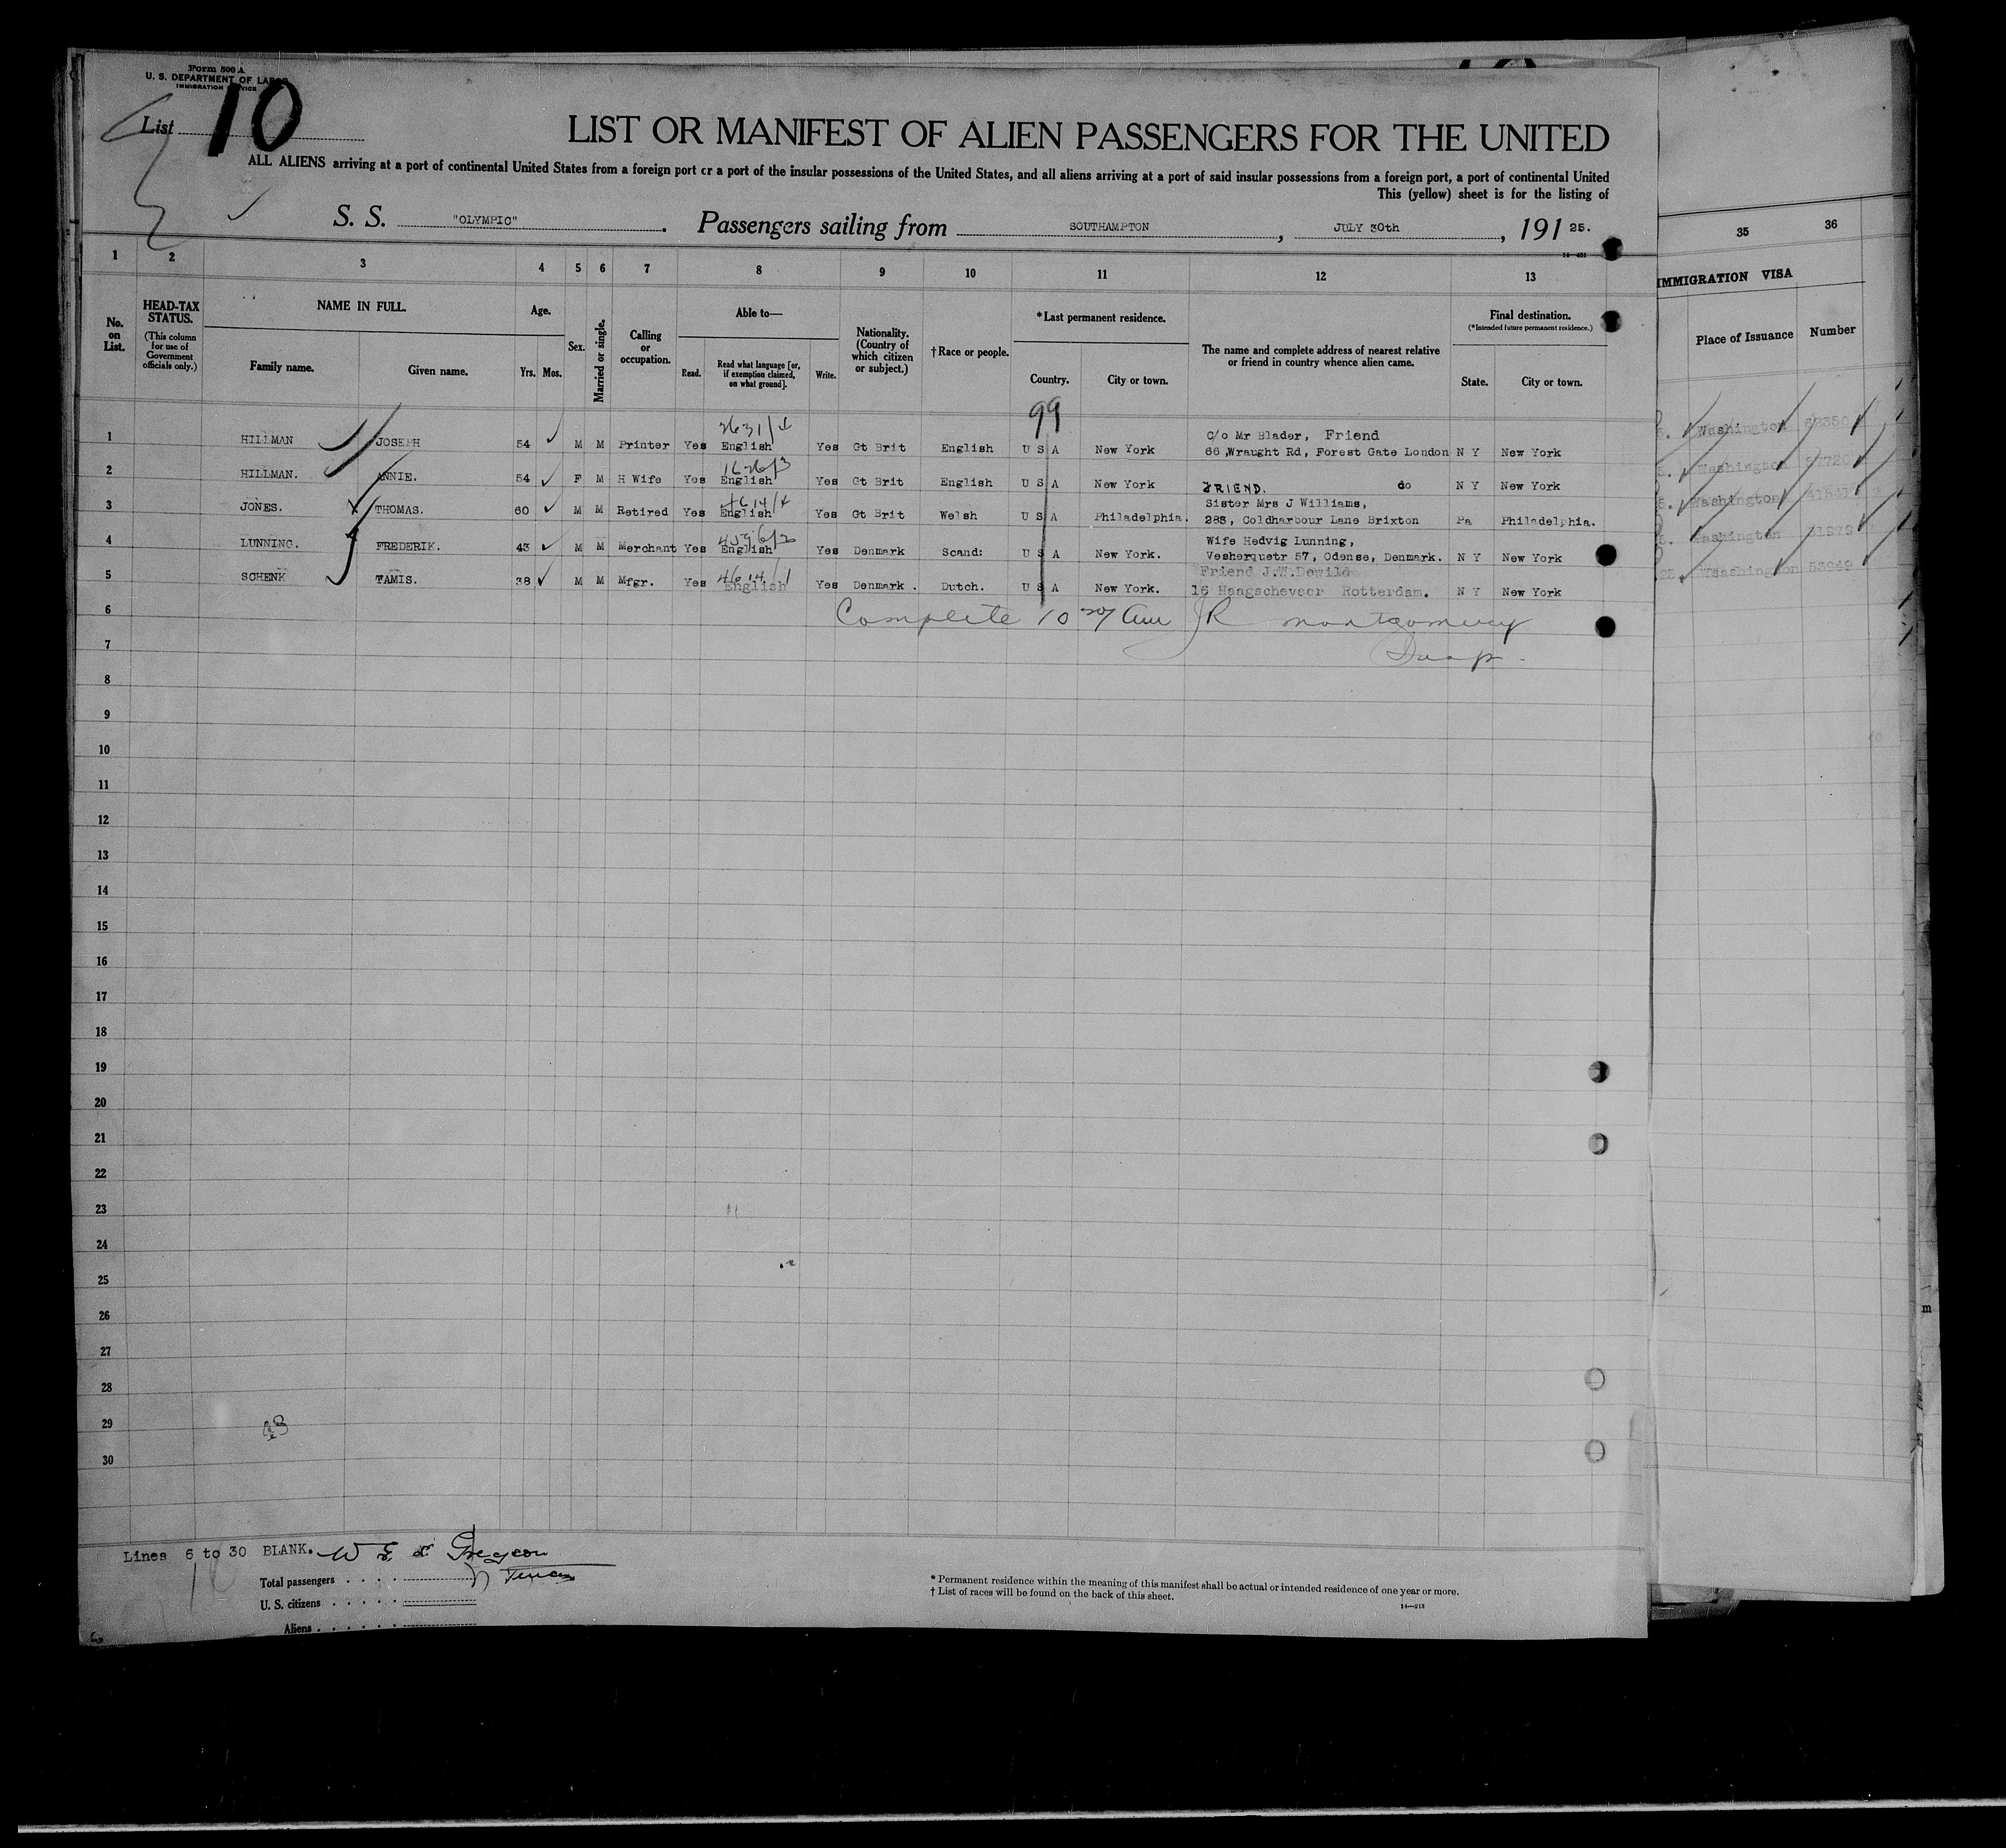 Form 500 A
U. S. DEPARTMENT OF LABOR
IMMIGRATION SERVICE
List 10
LIST OR MANIFEST OF ALIEN PASSENGERS FOR THE UNITED
ALL ALIENS arriving at a port of continental United States from a foreign port or a port of the insular possessions of the United States, and all aliens arriving at a port of said insular possessions from a foreign port, a port of continental United
This (yellow) sheet is for the listing of
S. S. "OLYMPIC". Passengers sailing from SOUTHAMPTON, JULY 30th, 191 25.
1 2 3 4 5 6 7 8 9 10 11 12 13 35 36
No. on List.
HEAD-TAX STATUS.
(This column for use of Government officials only.)
NAME IN FULL.
Family name. Given name.
Age.
Yrs. Mos.
Sex.
Married or single.
Calling or occupation.
Able to—
Read. Read what language [or, if exemption claimed, on what ground]. Write.
Nationality. (Country of which citizen or subject.)
†Race or people.
*Last permanent residence.
Country. City or town.
The name and complete address of nearest relative or friend in country whence alien came.
Final destination.
(*Intended future permanent residence.)
State. City or town.
IMMIGRATION VISA
Place of Issuance Number
99
C/o Mr Blader, Friend
1 HILLMAN JOSEPH 54 M M Printer Yes English Yes Gt Brit English U S A New York 66,Wraught Rd, Forest Gate London N Y New York Washington
2 HILLMAN. ANNIE. 54 F M H Wife Yes English Yes Gt Brit English U S A New York FRIEND. do N Y New York Washington
Sister Mrs J Williams,
3 JONES. THOMAS. 60 M M Retired Yes English Yes Gt Brit Welsh U S A Philadelphia. 283, Coldharbour Lane Brixton Pa Philadelphia. Washington
Wife Hedvig Lunning,
4 LUNNING. FREDERIK. 43 M M Merchant Yes English Yes Denmark Scand: U S A New York. Vesherquetr 57, Odense, Denmark. N Y New York Washington
Friend J.W.Dewild
5 SCHENK TAMIS. 38 M M Mfgr. Yes English Yes Denmark. Dutch. U S A New York. 16 Haagscheveer Rotterdam. N Y New York Washington 53949
6 Complete JR Montgomery
7 Insp.
8
9
10
11
12
13
14
15
16
17
18
19
20
21
22
23
24
25
26
27
28
29
30
Lines 6 to 30 BLANK.
Total passengers . . . .
U. S. citizens . . . . .
Aliens . . . . . .
* Permanent residence within the meaning of this manifest shall be actual or intended residence of one year or more.
† List of races will be found on the back of this sheet.
14—213